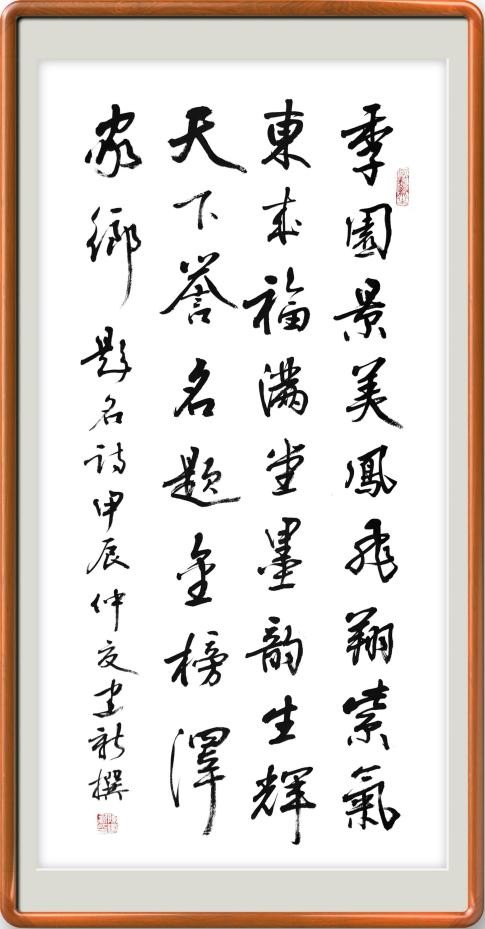 季園景美鳳飛翔紫氣
東來福滿堂墨韵生輝
天下誉名題金榜澤
家鄉 題名詩甲辰仲夏建新撰